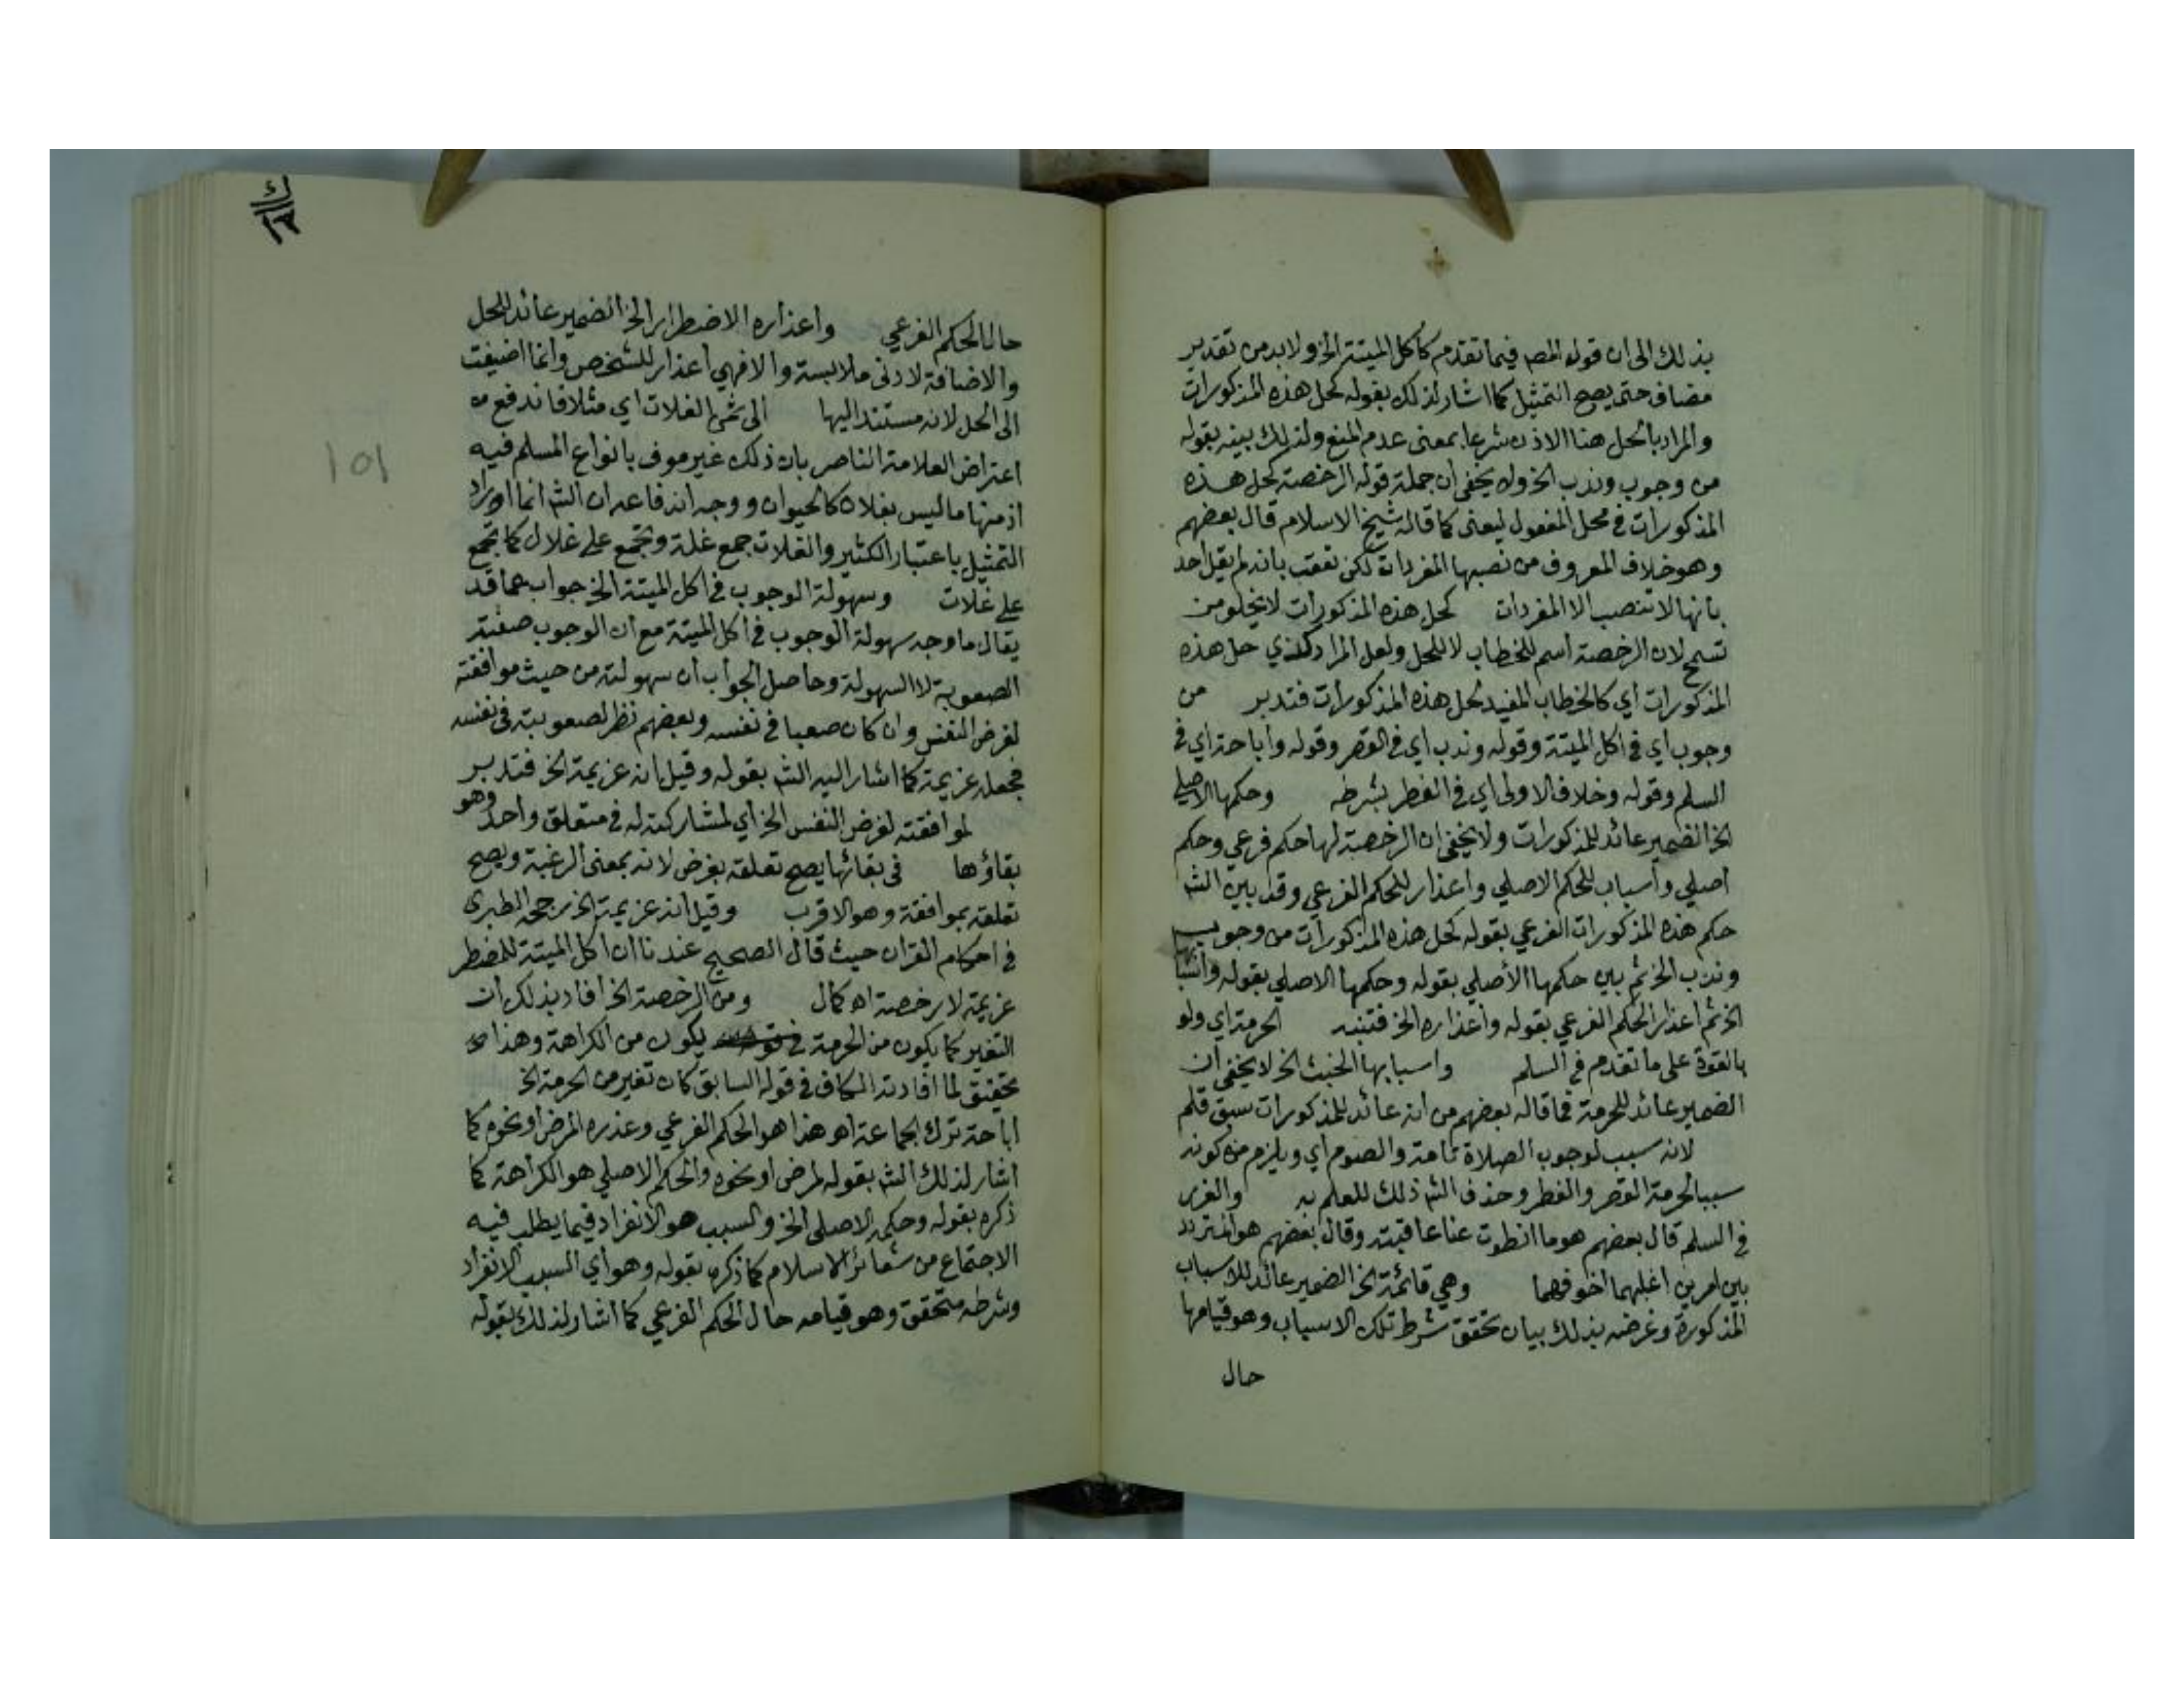 بذلك الى ان قوله المص فيما تقدم كاكل الميتة الخ ولابد من تقدير
مضاف حتى يصح التمثيل كما اشار لذلك بقوله كحل هذه المذكورات
والمراد بالحل هنا الاذن شرعا بمعنى عدم المنع ولذلك بينه بقوله
من وجوب وندب الخ ولا يخفى ان جملة قوله الرخصة كحل هذه
المذكورات في محل المفعول ليعنى كما قاله شيخ الاسلام قال بعضهم
وهو خلاف المعروف من نصبها المفردات لكن تعقب بانه لم يقل احد
بانها لا تنصب الا المفردات كحل هذه المذكورات لا يخلو من
تسمح لان الرخصة اسم للخطاب لا للحل ولعل المراد كذي حل هذه
المذكورات أي كالخطاب المفيد لحل هذه المذكورات فتدبر من
وجوب أي في اكل الميتة وقوله وندب اي في القصر وقوله وأباحة اي في
السلم وقوله وخلاف الاولى اي في الفطر بشرطه وحكمها الاصلي
الخ الضمير عائد للمذكورات ولا يخفى ان الرخصة لها حكم فرعي وحكم
اصلي وأسباب للحكم الاصلي واعذار للحكم الفرعي وقد بين الش
حكم هذه المذكورات الفرعي بقوله كحل هذه المذكورات من وجوب
وندب الخ ثم بين حكمها الأصلي بقوله وحكمها الاصلي بقوله واسبابها
الخ ثم اعذار الحكم الفرعي بقوله وأعذاره الخ فتنبه الحرمة اي ولو
بالقوة على ما تقدم في السلم واسبابها الخبث الخ لا يخفى ان
الضمير عائد للحرمة فما قاله بعضهم من انه عائد للمذكورات سبق قلم
لانه سبب لوجوب الصلاة تامة والصوم أي ويلزم من كونه
سببا لحرمة القصر والفطر وحذف الش ذلك للعلم به والغرر
في السلم قال بعضهم هو ما انطوت عنا عاقبته وقال بعضهم هو المتردد
بين امرين اغلبهما اخوفهما وهي قائمة الخ الضمير عائد للاسباب
المذكورة وغرضه بذلك بيان تحقق شرط تلك الاسباب وهو قيامها
حال
١٥١
حال الحكم الفرعي وأعذاره الاضطرار الخ الضمير عائد للحل
والاضافة لادنى ملابسة والا فهي اعذار للشخص وانما اضيفت
الى الحل لانه مستند اليها الى ثمن الغلات اي مثلا فاندفع
اعتراض العلامة الناصر بان ذلك غير موف بانواع المسلم فيه
اذ منها ما ليس بغلات كالحيوان ووجه اندفاعه ان الش انما اراد
التمثيل باعتبار الكثير والغلات جمع غلة وتجمع على غلال كما تجمع
على غلات وسهولة الوجوب في اكل الميتة الخ جواب عما قد
يقال ما وجه سهولة الوجوب في اكل الميتة مع ان الوجوب صفته
الصعوبة لا السهولة وحاصل الجواب أن سهولته من حيث موافقته
لغرض النفس وان كان صعبا في نفسه وبعضهم نظر لصعوبته في نفسه
فجعله عزيمة كما اشار اليه الش بقوله وقيل انه عزيمة الخ فتدبر
لموافقته لغرض النفس الخ اي لمشاركته له في متعلق واحد وهو
بقاؤها في بقائها يصح تعلقه بغرض لانه بمعنى الرغبة ويصح
تعلقه بموافقة وهو الاقرب وقيل انه عزيمة الخ رجحه الطبري
في احكام القران حيث قال الصحيح عندنا ان اكل الميتة للمضطر
عزيمة لا رخصة اه كمال ومن الرخصة الخ افاد بذلك ان
التغير كما يكون من الحرمة يكون من الكراهة وهذا
تحقيق لما افادته الكاف في قوله السابق كان تغير من الحرمة الخ
اباحة ترك الجماعة اه هذا هو الحكم الفرعي وعذره المرض او نحوه كما
اشار لذلك الش بقوله لمرض او نحوه والحكم الاصلي هو الكراهة كما
ذكره بقوله وحكمه الاصلي الخ والسبب هو الانفراد فيما يطلب فيه
الاجتماع من شعائر الاسلام كما ذكره بقوله وهو أي السبب الانفراد
وشرطه متحقق وهو قيامه حال الحكم الفرعي كما اشار لذلك بقوله